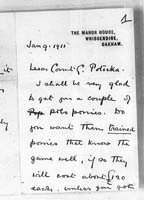 1
THE MANOR HOUSE,
WHISSENDINE,
OAKHAM.
Jan 9. 1911
Dear Count C. Potocka.
I shall be very glad
to get you a couple of
polo ponies. Do
you want them trained
ponies that know the
game well, if so they
will cost about £120
each. unless you